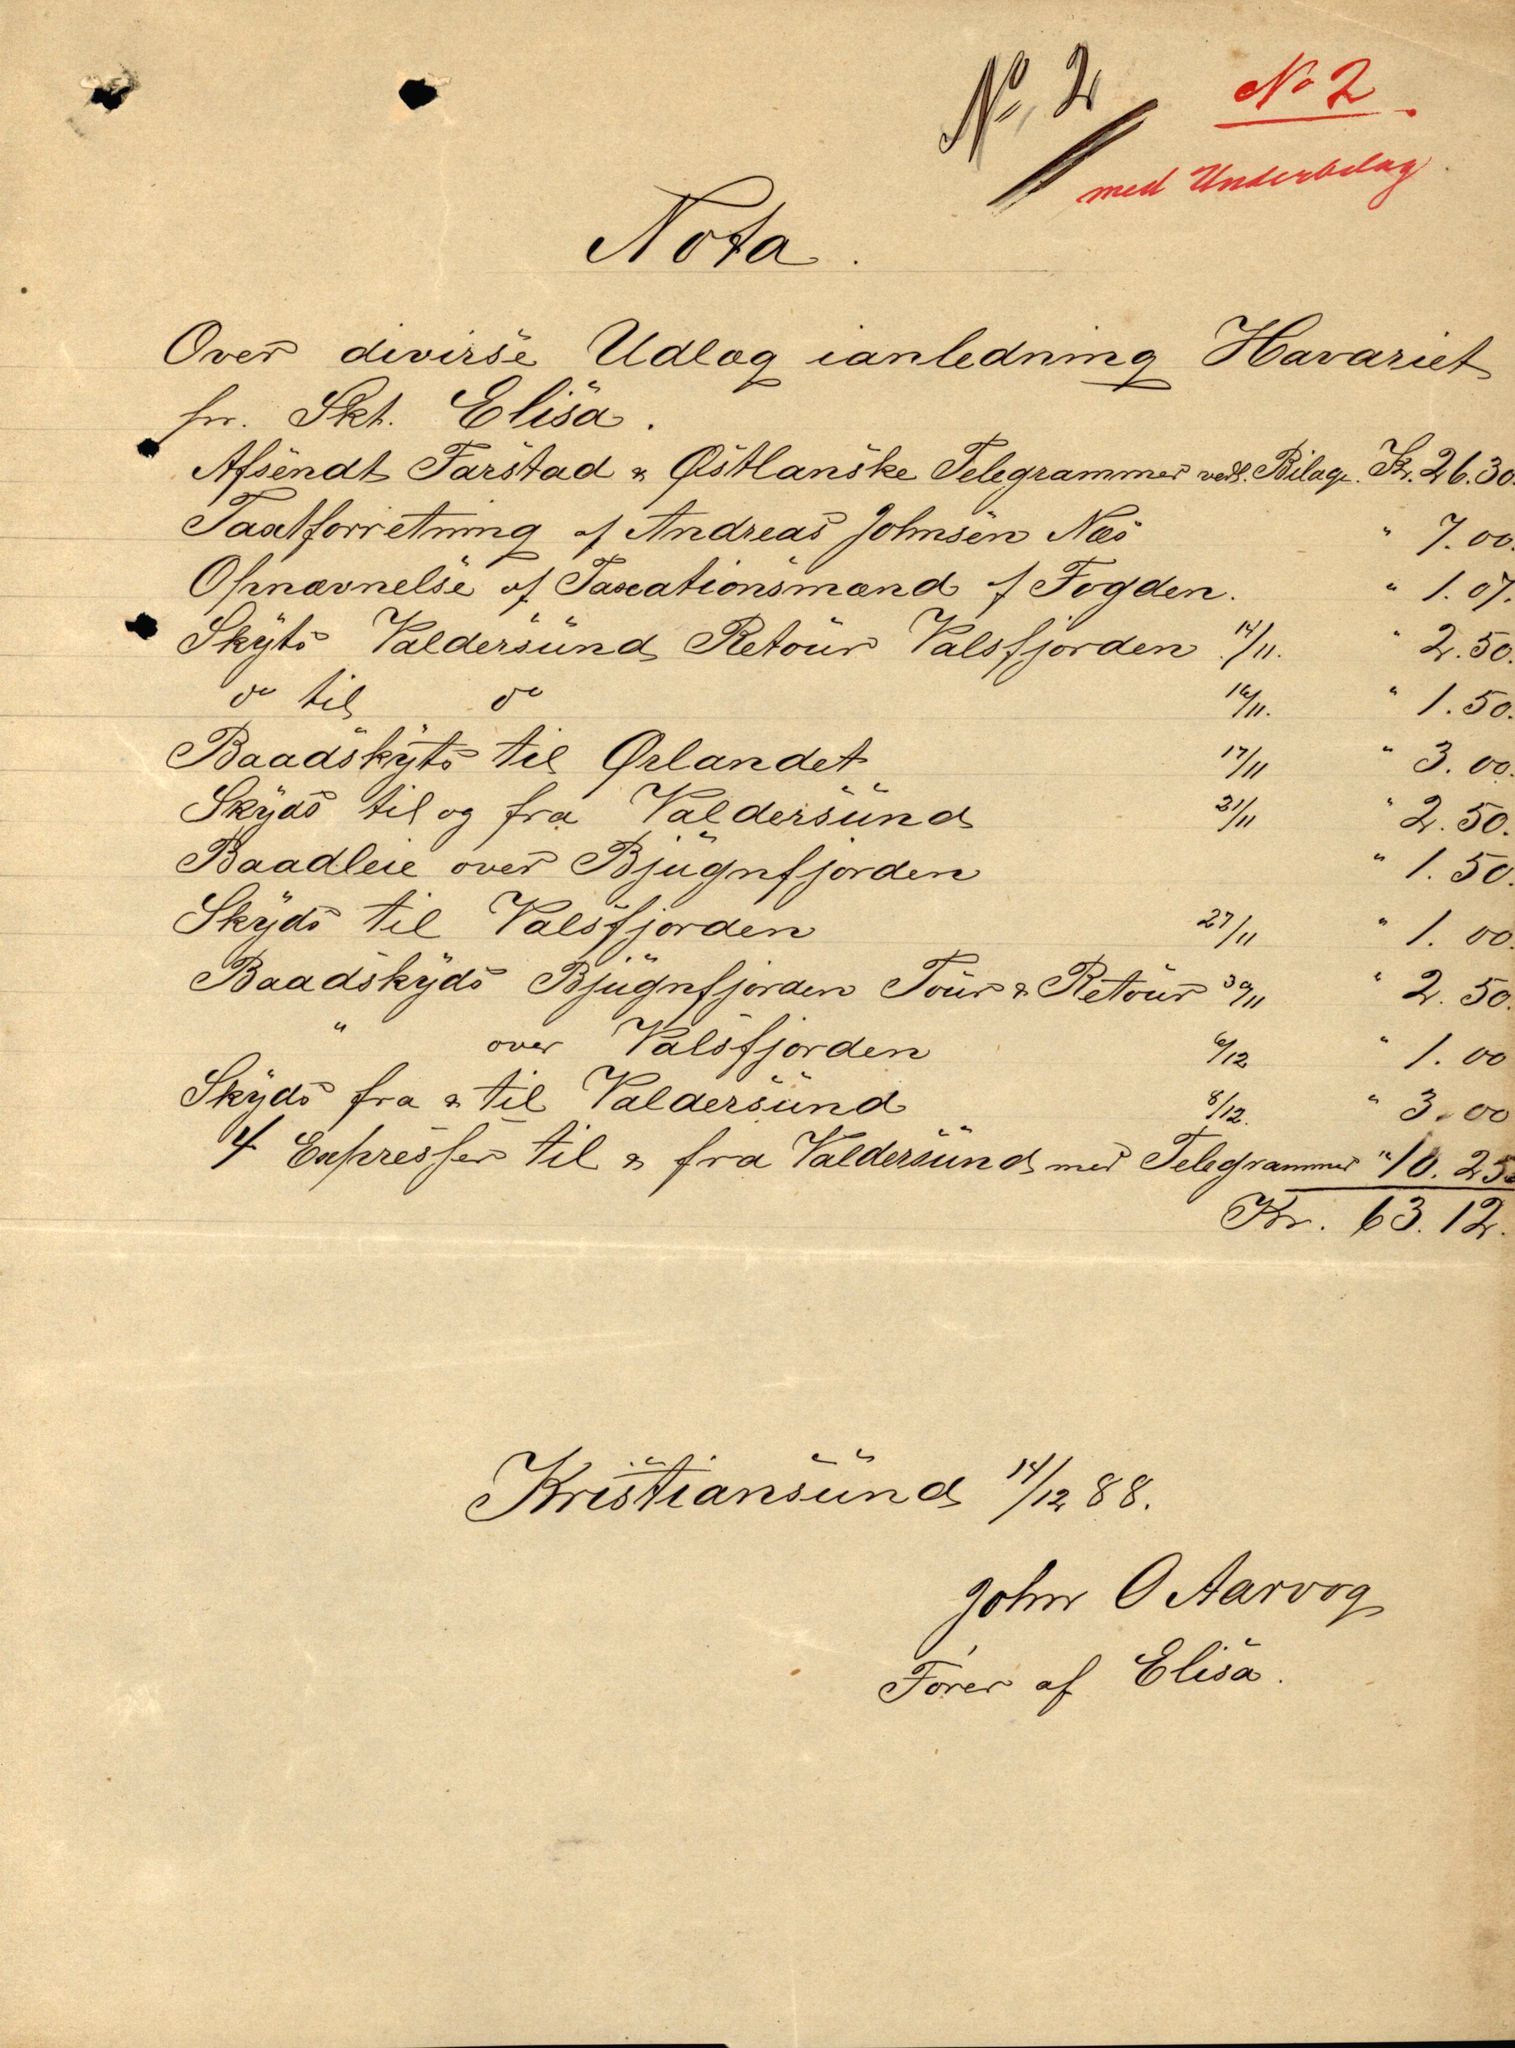 No. 2
No 2
med Underbelag
Nota.
Over divirse Udlæg ianledning Havariet
pr. Skt. Elisa.
Afsendt Farstad & Østlanske Telegrammer vedl. Bilage. Kr. 26.30.
Taxtforretning af Andreas Johnsen Næs " 7.00.
Opnævnelse af Taxationsmænd af Fogden. " 1.07.
Skyts Valdersund Retour Valsfjorden 14/11. " 2.50.
do til do 16/11. " 1.50.
Baadskyts til Ørlandet 17/11 " 3.00.
Skyds til og fra Valdersund 21/11 " 2.50.
Baadleie over Bjugnfjorden " 1.50.
Skyds til Valsfjorden 27/11 " 1.00.
Baadskyds Bjugnfjorden Tour & Retour 30/11 " 2.50.
" over Valsfjorden 6/12 " 1.00
Skyds fra & til Valdersund 8/12. " 3.00
4 Expresser til & fra Valdersund med Telegrammer " 10.25
Kr. 63.12.
Kristiansund 14/12 88.
John O Aarvog
Fører af Elisa.